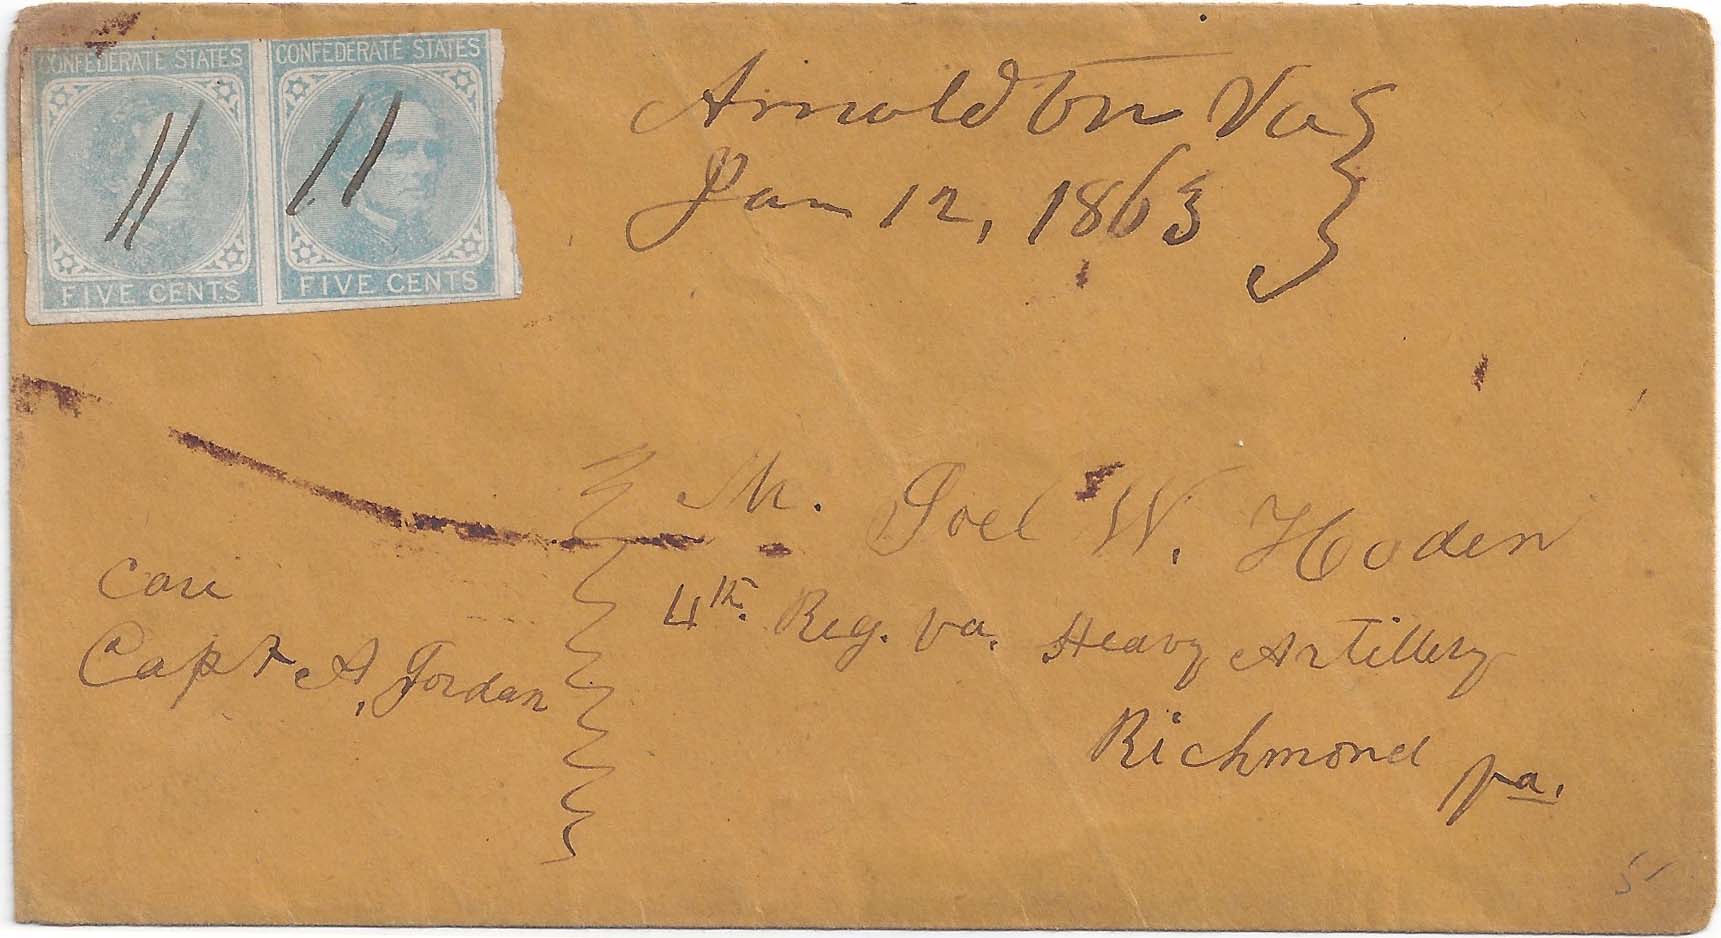 CONFEDERATE STATES CONFEDERATE STATES
FIVE CENTS FIVE CENTS
Arnoldton Va
Jan 12, 1863
M. Joel W. Hoden
4th. Reg. va. Heavy Artillery
Richmond va.
Care
Capt A, Jordan
5